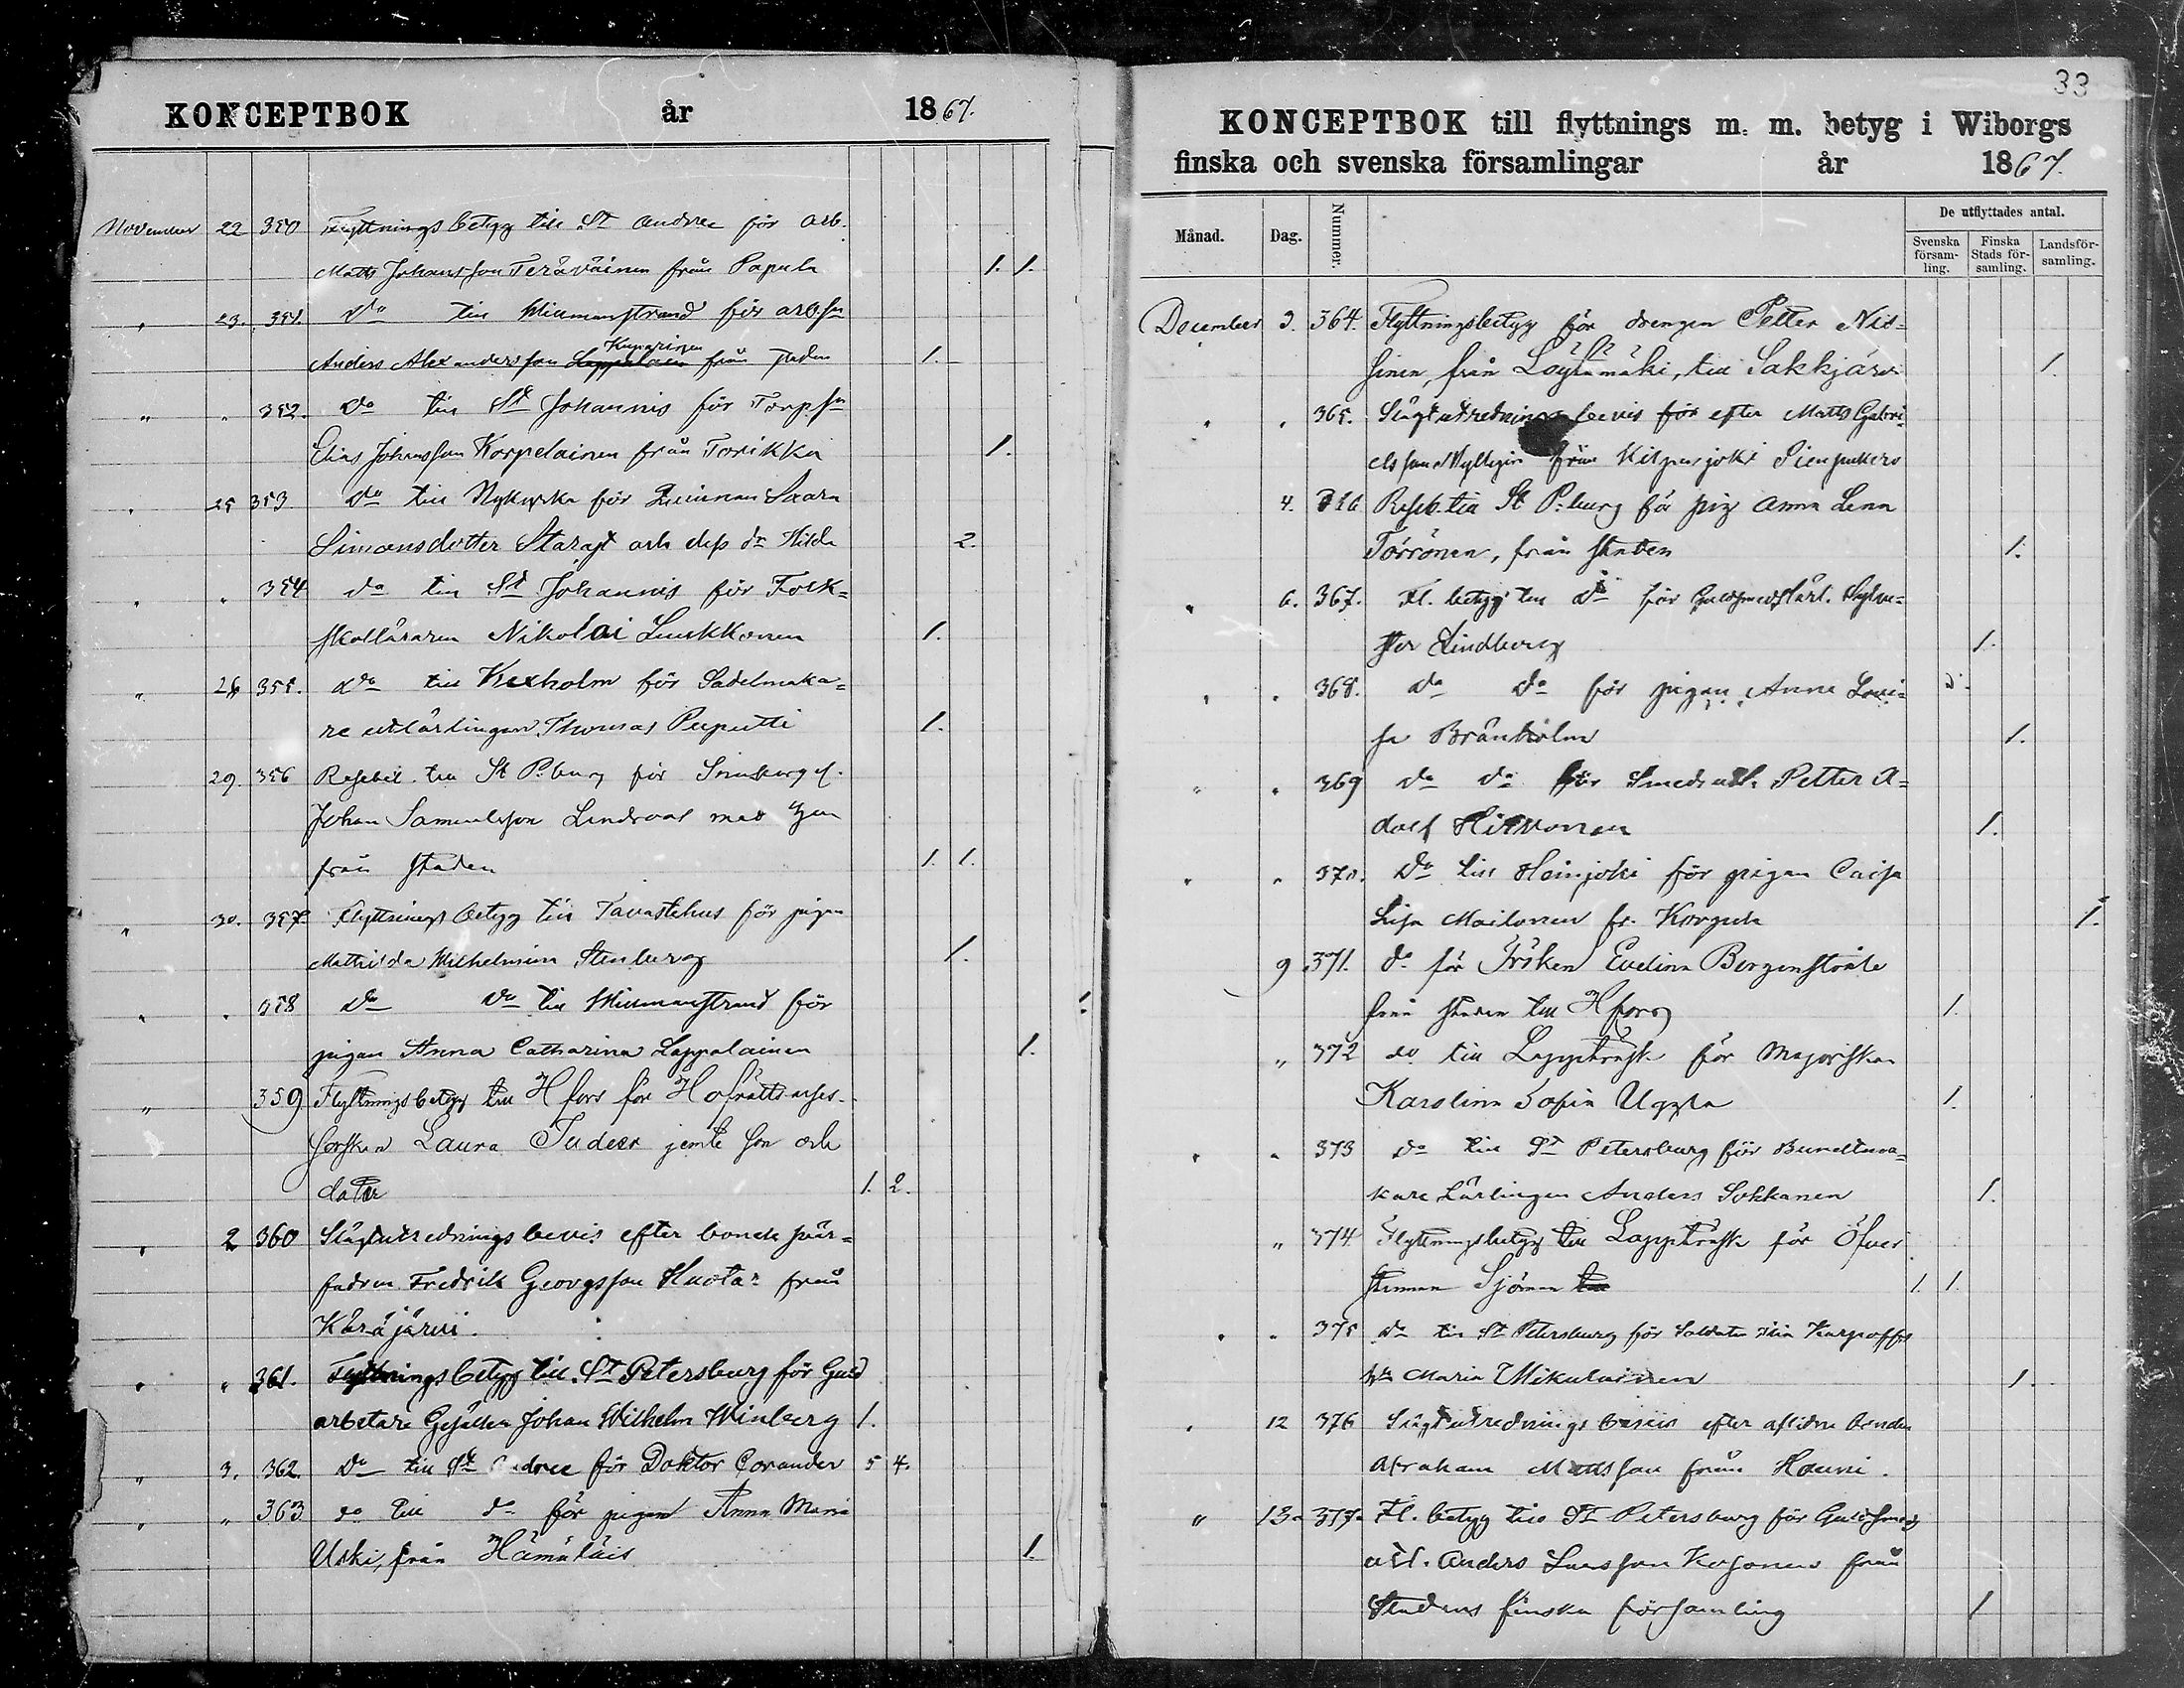 KONCEPTBOK år 1867.
November 22 350 Flyttningsbetyg till St Andree för arb.
Matts Johansson Teräväinen från Papula 1. 1.
" 23. 351. do till Willmanstrand för arb.sn
Kuparinen
Anders Alexandersson Lappalainen från staden 1.
" " 352. do till St Johannis för Torp.sn
Elias Johansson Korpelainen från Torikka 1.
" 25 353. do till Nykyrka för Qvinnan Saara
Simonsdotter Starast och dess dr Hilda 2.
" " 354 do till St Johannis för Folk=
skolläraren Nikolai Luukkonen 1.
" 26 355. do till Kexholm för Sadelmaka=
re utlärlingen Thomas Peiputti 1.
29. 356 Resebet. till St P:burg för
Johan Samuelsson Lindroos med
från staden 1. 1.
" 30. 357 Flyttningsbetyg till Tavastehus för pigan
Mathilda Wilhelmina Stenberg 1.
" " 358 do do till Willmanstrand för
pigan Anna Catharina Lappalainen 1.
" 359 Flyttningsbetyg till Hfors för Hofrätts asses-
sorskan Laura Tudeer jemte son och
dotter 1. 2.
" 2 360 Slägtutredningsbevis efter bonde
fadren Fredrik Georgsson Kuotar från
Käräjärvi.
" " 361. Flyttningsbetyg till St Petersburg för Guld
arbetare Gesällen Johan Wilhelm Winberg 1.
" 3. 362. do till St Andree för Doktor Corander 5 4.
" " 363 do till do för pigan Anna Maria
Uski, från Hämäläis 1.
33
KONCEPTBOK till flyttnings m. m. betyg i Wiborgs
finska och svenska församlingar år 1867.
Månad. Dag. Nummer. De utflyttades antal.
Svenska församling. Finska Stads församling. Landsförsamling.
December 3. 364. Flyttningsbetyg för drengen Petter Nis-
sinen, från Loytömäki, till Säkkjärvi 1.
" " 365. Slägtutredningsbevis för efter Matts Gabri-
elsson från Kilpenjoki
4. 366 Reseb. till St P:burg för pig Anna Lena
Törrönen, från staden 1.
" 6. 367. Fl. betyg till do för Guldsmedslärl. Sylve=
ster Lindberg 1.
" " 368. do do för pigan Anna Lovi=
sa Bränholm 1.
" " 369 do do för Smedsutl. Petter A=
dolf Hirvonen 1.
" " 370. do till Heinjoki för pigan Caisa
Lisa Mailonen fr. Korpela 1.
9 371. do för Fröken Evelina Borgenström
från staden till Hfors 1.
" 372 do till Lappträsk för Majorskan
Karolina Sofia Uggla 1.
" " 373 do till St Petersburg för Bundtma=
kare Lärlingen Anders Sokkanen 1.
" 374 Flyttningsbetyg till Lappträsk för Öfver
stinnan Sjöman till 1. 1.
" " 375 do till St Petersburg för Soldaten Ilia Karpoffs
h:u Maria Mikulainen 1.
" 12 376 Slägtutrednings bevis efter aflidne bonden
Abraham Mattsson från Houni.
" 13. 377. Fl. betyg till St Petersburg för Guldsmeds
utl. Anders Larsson Kosonen från
Stadens finska församling 1